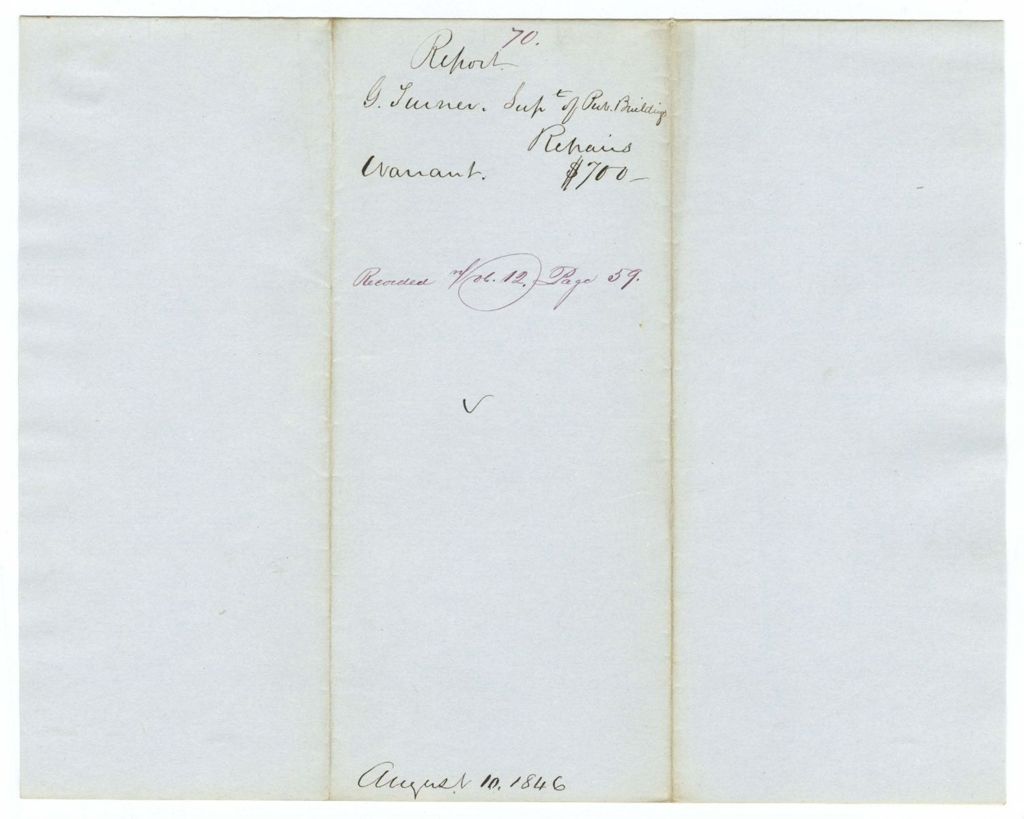 70.
Report
G. Turner. Supt of Pub. Buildings
Repairs
Warrant. $700–
Recorded Vol. 12. Page 59.
✓
August 10. 1846